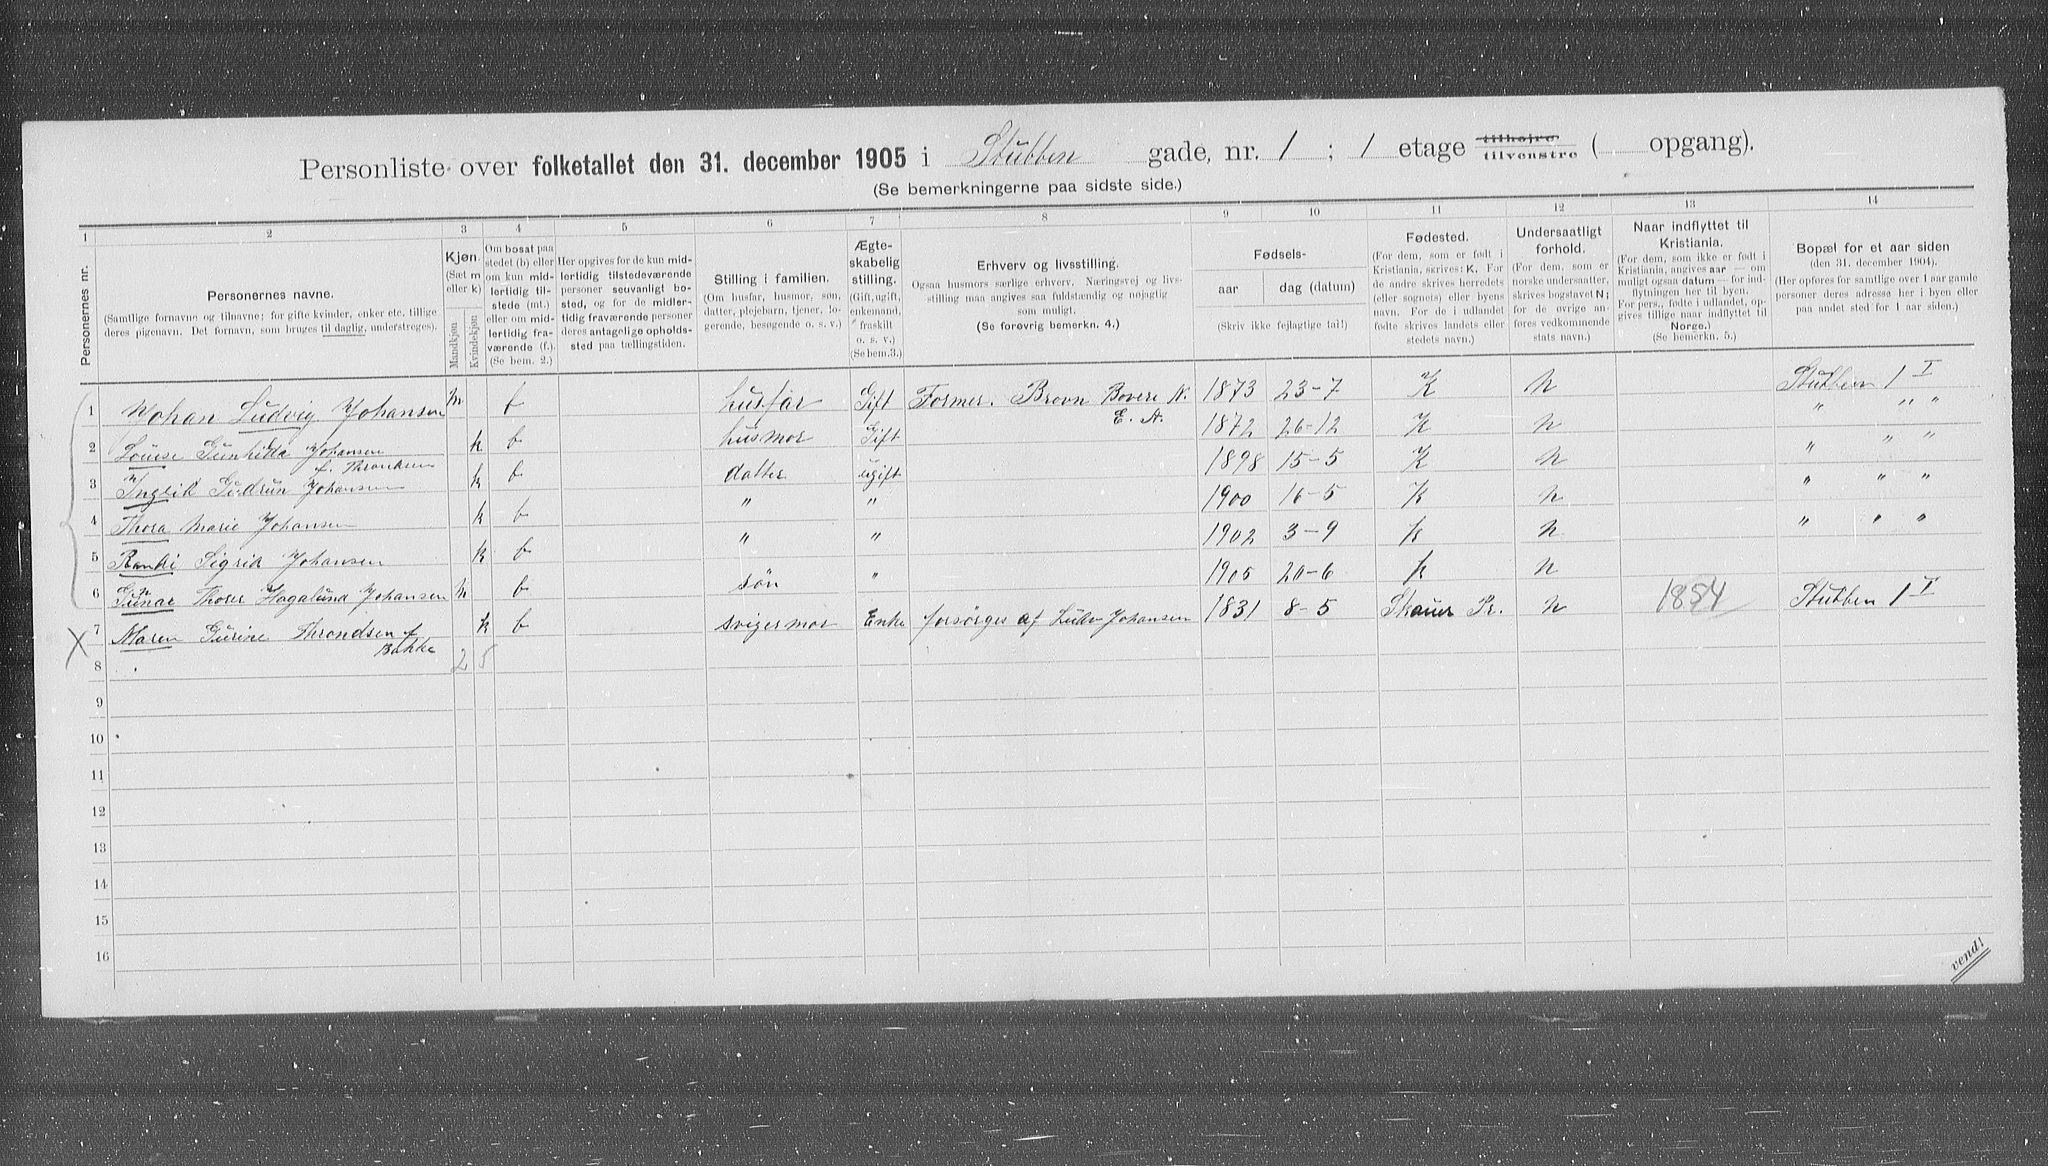 Personliste over folketallet den 31. december 1905 i Stubben gade, nr. 1 ; 1 etage tilhøjre tilvenstre ( opgang).
(Se bemerkningerne paa sidste side.)
1 2 3 4 5 6 7 8 9 10 11 12 13 14
Personernes nr.
Personernes navne.
(Samtlige fornavne og tilnavne; for gifte kvinder, enker etc. tillige
deres pigenavn. Det fornavn, som bruges til daglig, understreges).
Kjøn.
(Sæt m
eller k)
Mandkjøn
Kvindekjøn
Om bosat paa
stedet (b) eller
om kun mid-
lertidig til-
stede (mt.)
eller om mid-
lertidig fra-
værende (f.)
(Se bem. 2.)
Her opgives for de kun mid-
lertidig tilstedeværende
personer seuvanligt bo-
sted, og for de midler-
tidig fraværende personer
deres antagelige opholds-
sted paa tællingstiden.
Stilling i familien.
(Om husfar, husmor, søn,
datter, plejebarn, tjener, lo-
gerende, besøgende o. s. v.)
Ægte-
skabelig
stilling.
(Gift, ugift,
enkemand,
fraskilt
o. s. v.)
(Se bem.3.)
Erhverv og livsstilling.
Ogsaa husmors særlige erhverv. Næringsvej og livs-
stilling maa angives saa fuldstændig og nøjagtig
som muligt.
(Se forøvrig bemerkn. 4.)
Fødsels-
aar dag (datum)
(Skriv ikke fejlagtige tal!)
Fødested.
(For dem, som er født i
Kristiania, skrives: K. For
de andre skrives herredets
(eller sognets) eller byens
navn. For de i udlandet
fødte skrives landets eller
stedets navn.)
Undersaatligt
forhold.
(For dem, som er
norske undersaatter,
skrives bogstavet N;
for de øvrige an-
føres vedkommende
stats navn.)
Naar indflyttet til
Kristiania.
(For dem, som ikke er født i
Kristiania, angives aar — om
muligt ogsaa datum — for ind-
flytningen her til byen.
For pers., fødte i udlandet, op-
gives tillige naar indflyttet til
Norge.)
(Se bemerkn. 5.)
Bopæl for et aar siden
(den 31. december 1904).
(Her opføres for samtlige over 1 aar gamle
personer deres adresse her i byen eller
paa andet sted for 1 aar siden.)
1 Johan Ludvig Johansen m b husfar Gift Former. Brovn Bovere N. E. A. 1873 23-7 K N Stubben 1 I
2 Louise Gunhilda Johansen f. Throndsen k b husmor Gift 1872 26-12 K N " " "
3 Ingrid Gudrun Johansen k b datter ugift 1898 15-5 K N " " "
4 Thora Marie Johansen k b " " 1900 16-5 K N " " "
5 Randi Sigrid Johansen k b " " 1902 3-9 K N " " "
6 Gunnar Thorer Hagalund Johansen m b søn " 1905 20-6 K N
7 Maren Gurine Throndsen f Bakke k b svigermor Enke forsørges af Ludv Johansen 1831 8-5 Skauer Pr. N 1854 Stubben 1 I
8 2 5
9
10
11
12
13
14
15
16
vend!